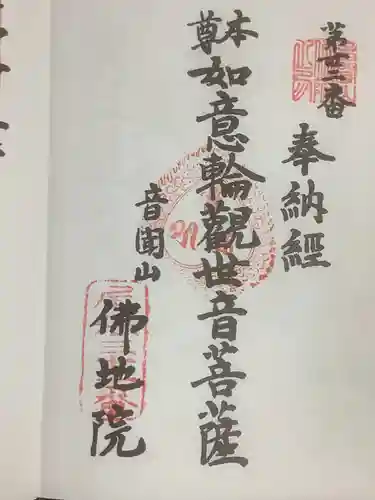 第十二番
奉納經
本尊
如意輪觀世音菩薩
音圍山
佛地院